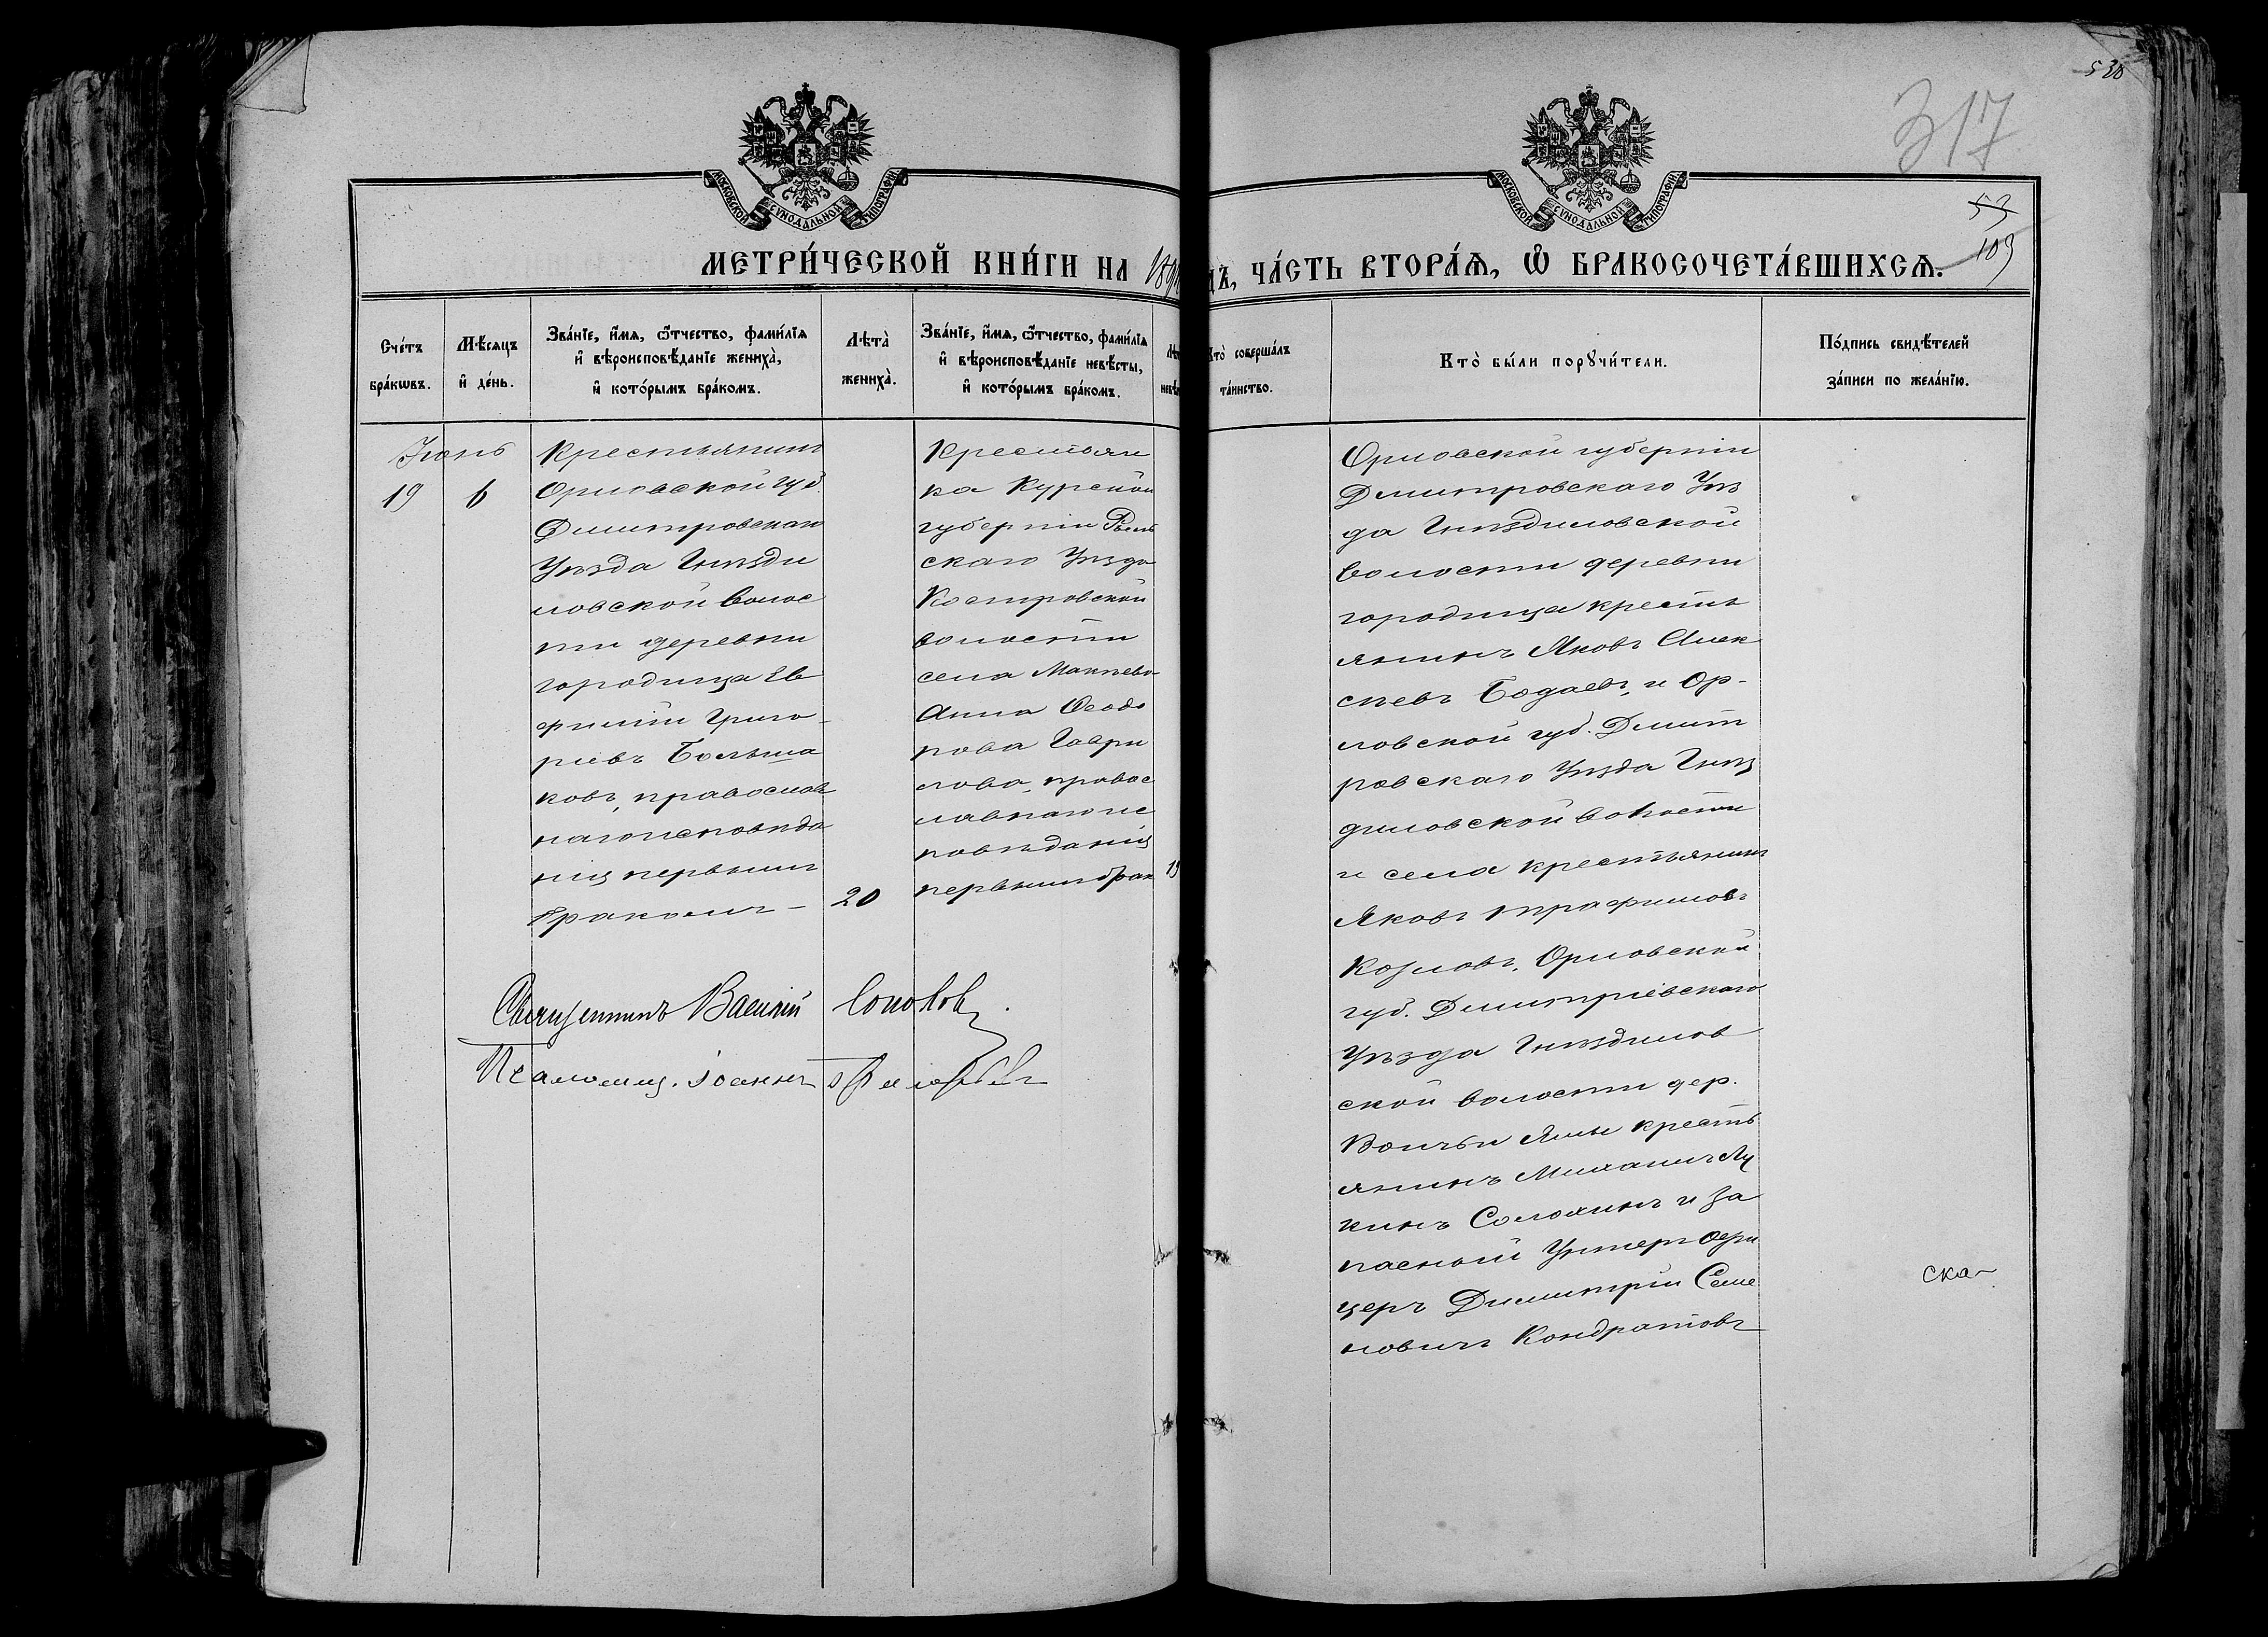 530
317
53
109
МОСКОВСКОЙ СѴНОДАЛЬНОЙ ТИПОГРАФІИ
МОСКОВСКОЙ СѴНОДАЛЬНОЙ ТИПОГРАФІИ
МЕТРИ́ЧЕСКОЙ КНИ́ГИ НА 189
ДЪ, ЧА́СТЬ ВТОРА́Ѧ, Ѡ БРАКОСОЧЕТА́ВШИХСѦ.
Сче́тъ
бра́кѡвъ.
Мѣ́сяцъ
и҆ де́нь.
Зва́нїе, и҆́мѧ, ѻ҆́тчество, фами́лїѧ
и҆ вѣроисповѣ́данїе жениха̀,
и҆ кото́рымъ бра́комъ.
Лѣта̀
жениха̀.
Зва́нїе, и҆́мѧ, ѻ҆́тчество, фами́лїѧ
и҆ вѣроисповѣ́данїе невѣ́сты,
и҆ кото́рымъ бра́комъ.
Кто̀ соверша́лъ
та́инство.
Кто̀ бы́ли порꙋчи́тели.
По́дпись свидѣ́телей
за́писи по жела́нїю.
Іюнь
19
6
Крестьянинъ
Орловской губ.
Дмитровскаго
Уѣзда Гнѣзди
ловской волос
ти деревни
городища Ев
фимій Григо
рьевъ Больша
ковъ, православ
наго исповѣда
нія первымъ
бракомъ
20
Крестьян
ка Курской
губерніи Рыль
скаго Уѣзда
Костровской
волости
села Макѣево
Анна Ѳеодо
рова Гаври
лова, правос
лавнаго ис
повѣданія
первымъ брак
19
Орловской губерніи
Дмитровскаго Уѣз
да Гнѣздиловской
волости деревни
городища кресть
янинъ Яковъ Алек
сѣевъ Бодаевъ, и Ор-
ловской губ. Дмит
ровскаго Уѣзда Гнѣз
диловской волости
и села крестьянинъ
Яковъ Трафимовъ
Козловъ, Орловской
губ. Дмитріевскаго
Уѣзда Гнѣздилов
ской волости дер.
Волчьи Ямы кресть
янинъ Михаилъ Лу
кинъ Солохинъ и За
пасный Унтеръ Офи
церъ Димитрій Семе
новичъ Кондратовъ
Священникъ Василій Соколов
Псаломщ. Іоаннъ
ска